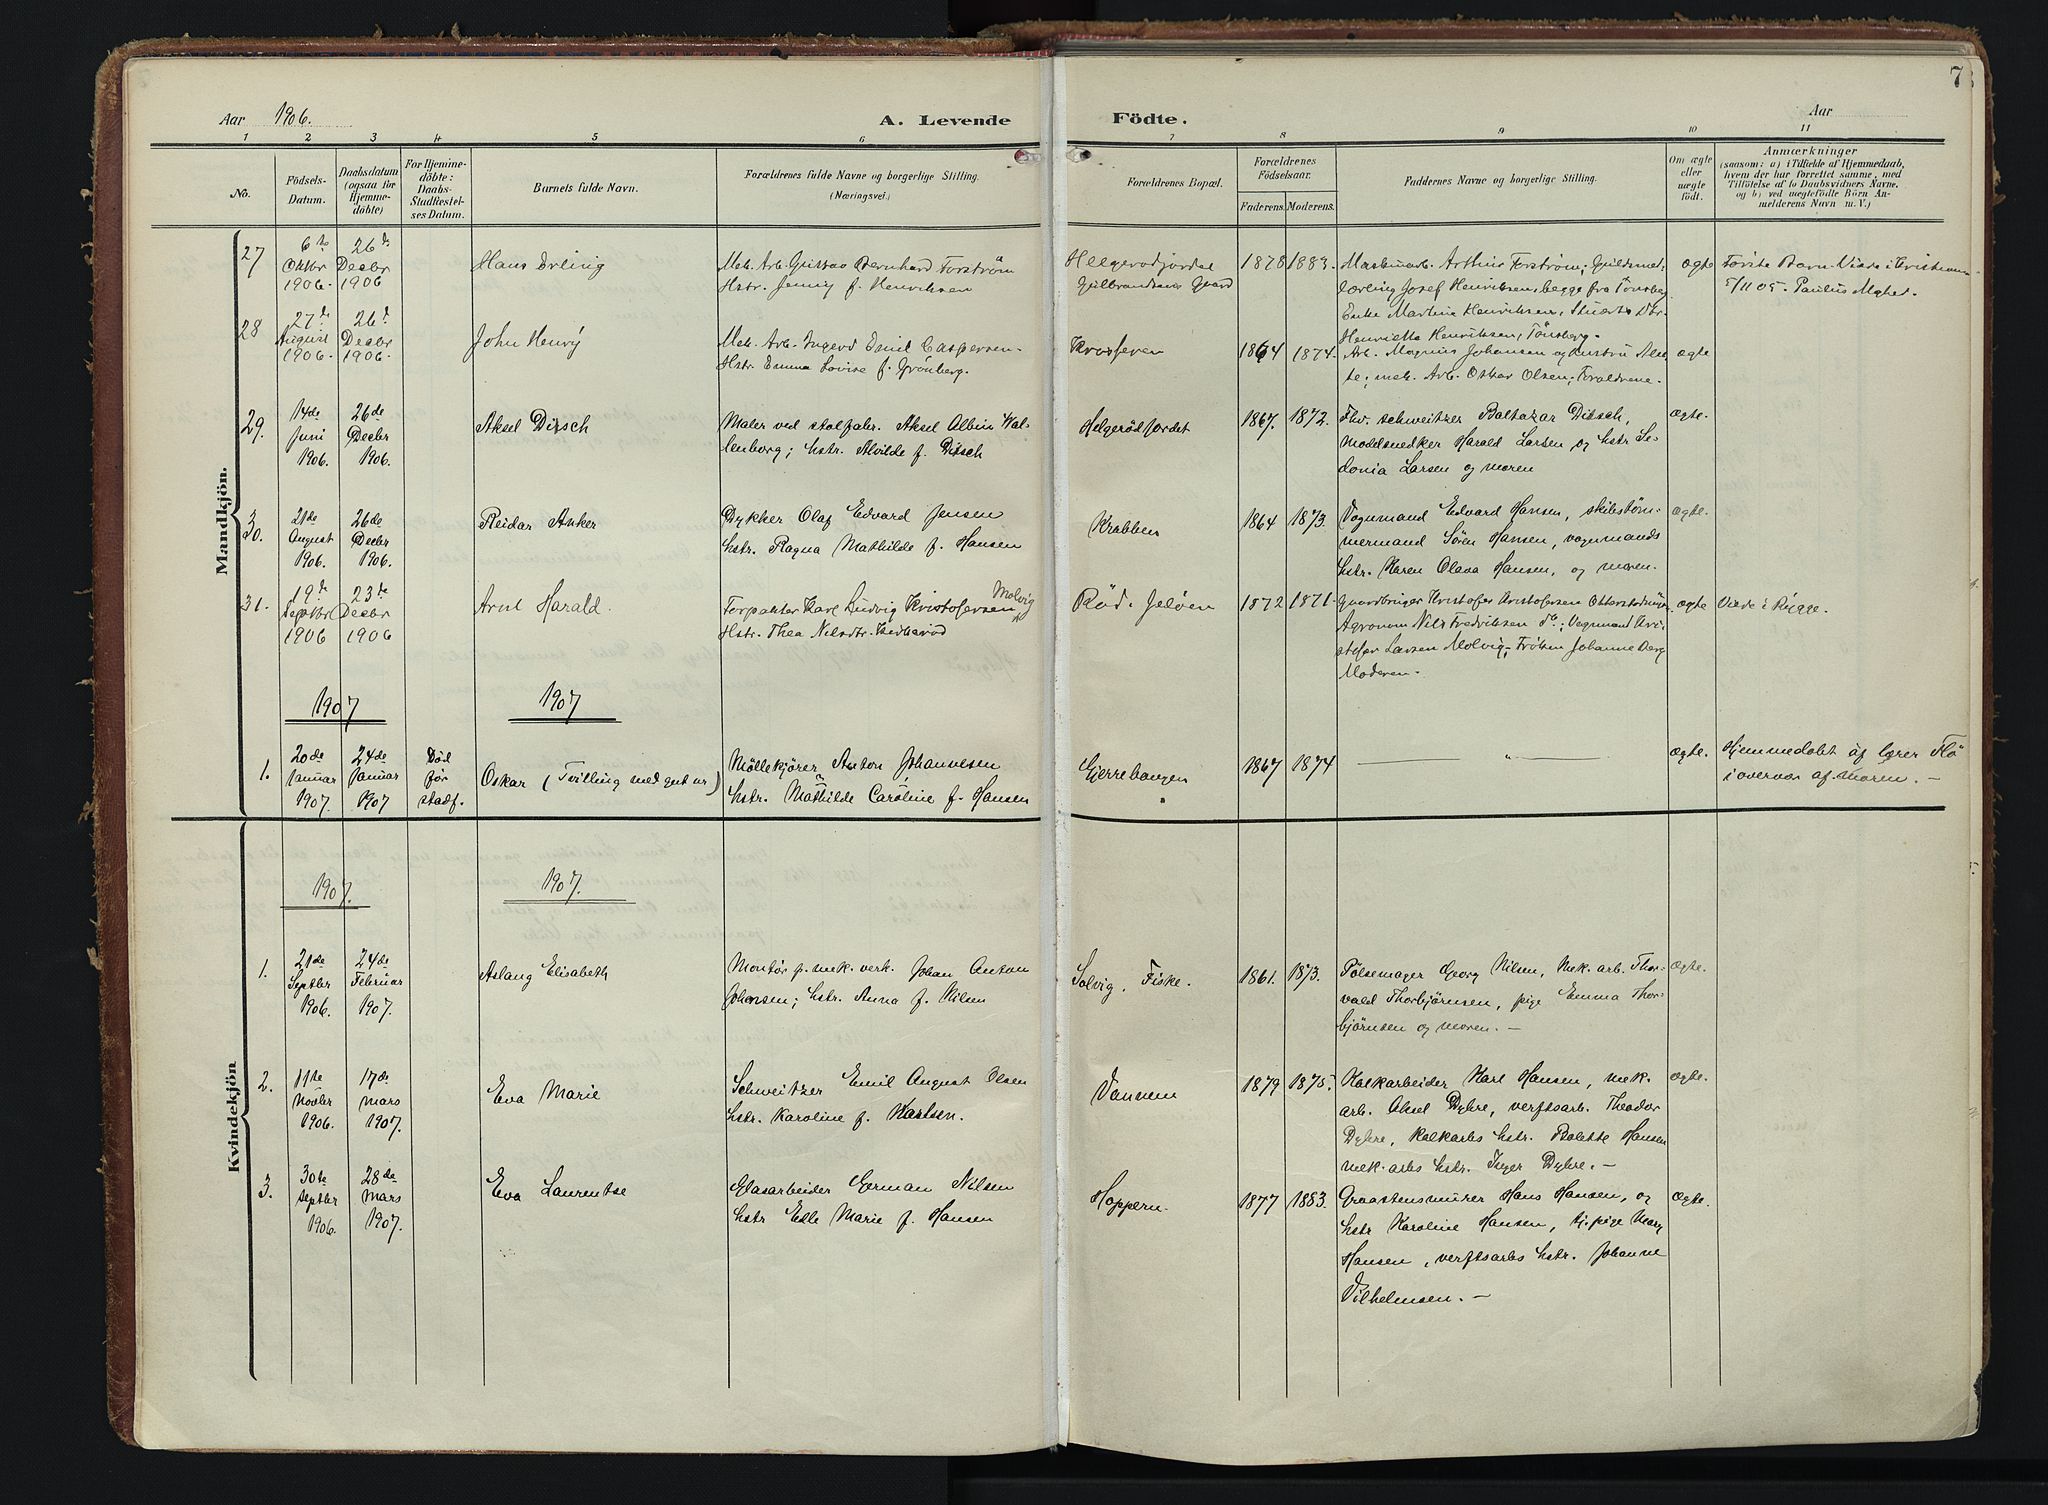 7
Aar 1906. A. Levende Födte. Aar
1 2 3 4 5 6 7 8 9 10 11
No. Födsels-Datum. Daabsdatum (ogsaa for Hjemme-döbte) For Hjemme-döbte: Daabs-Stadfæstel-ses Datum. Barnets fulde Navn. Forældrenes fulde Navne og borgerlige Stilling. (Næringsvei.) Forældrenes Bopæl. Forældrenes Födselsaar. Faderens. Moderens. Faddernes Navne og borgerlige Stilling. Om ægte eller uægte födt. Anmærkninger (saasom: a) i Tilfælde af Hjemmedaab, hvem der har forrettet samme, med Tilföielse af to Daabsvidners Navne, og b) ved uægtefödte Börn An-melderens Navn m. V.)
Mandkjön.
27 6te 26de
Oktbr Decbr Hans Erling Mek. Arb. Gustav Bernhard Forström Helgerødjordet 1878 1883. Maskinarb. Arthur Forström; Guldsmed- ægte Første Barn. Viede i
1906. 1906 Hstr. Jenny f. Henriksen Gulbrandsens Gaard lærling Josef Henriksen, begge fra Tønsberg 5/11 05.
Enke Martine Henriksen,
28 27de 26d. Henriette Henriksen, Tönsberg.
August Decbr John Henry Mek. Arb. Ingvd Emil Caspersen Krosseren 1864 1874. Arb. Magnus Johansen og Hustru ægte
1906 1906. Hstr. Emma Lovise f. Grönberg. mek. Arb. Oskar Olsen; Forældrene.
29. 14de 26de Aksel Dirsch Maler ved stolfabr. Aksel Albin Wal- Helgerödjordet 1867. 1872. Fhv. schweitzer Baltazar Dirsch, ægte.
Juni Decbr lenborg; hstr. Alvilde f. Dirsch modelsnedker Harald Larsen og hstr Se-
1906. 1906. donia Larsen og moren
30. 21de 26de Reidar Anker Dykker Olaf Edvard Jensen Krabben 1864 1873. Vognmand Edvard Hansen, skibstøm- ægte.
August Decbr hstr. Ragna Mathilde f. Hansen mermand Sören Hansen, vognmands
1906. 1906. hstr. Karen Olava Hansen, og moren.
31. 19de 23de Arnt Harald. Forpakter Karl Ludvig Kristofersen Molvig Rød i Jeløen 1872 1871. Gaardbruger Kristofer Kristofersen ægte Viede i Rygge.
Septbr Decbr Hstr. Thea Nilsdtr. Agronom Nils Fredriksen do; Vognmand Kri-
1906 1906 stofer Larsen Molvig; Frøken Johanne Berg
Moderen.
1907 1907
1. 20de 24de Død Møllekjører Anton Johannesen
Januar Januar før Oskar (Tvilling med gut nr.) hstr. Mathilde Caroline f. Hansen Gjerrebaugen 1867 1874 — " — ægte. Hjemmedøbt af lærer Flö
1907. 1907 stadf. i overvær af moren. —
Kvindekjön
1907. 1907.
1. 21de 24de Aslaug Elisabeth Montør p. mek. verk. Johan Anton Solvig, Fiske. 1861. 1873. Pølsemager Georg Nilsen, Mek. arb. Thor- ægte.
Septbr Februar Johansen; hstr. Anna f. Nilsen vald Thorbjörnsen, pige Emma Thor-
1906. 1907. björnsen og moren. —
2. 11te 17de Eva Marie Schweitzer Emil August Olsen Vannem 1879 1875. Kalkarbeider Karl Hansen, mek. ægte.
Novbr mars hstr. Karoline f. Karlsen. arb. Aksel Dyhre, verftsarb. Theodor
1906. 1907. Dyhre, kalkarbs hstr. Bolette Hansen
mek. arbs hstr. Inger Dyhre. —
3. 30te 28de Eva Laurentse Glasarbeider Herman Nilsen Hoppern. 1877 1883. Graastensmurer Hans Hansen, og ægte.
Septbr Mars hstr Elle Marie f. Hansen hstr Karoline Hansen, tj. pige Mary
1906. 1907. Hansen, verftsarbs hstr. Johanne
Vilhelmsen. —